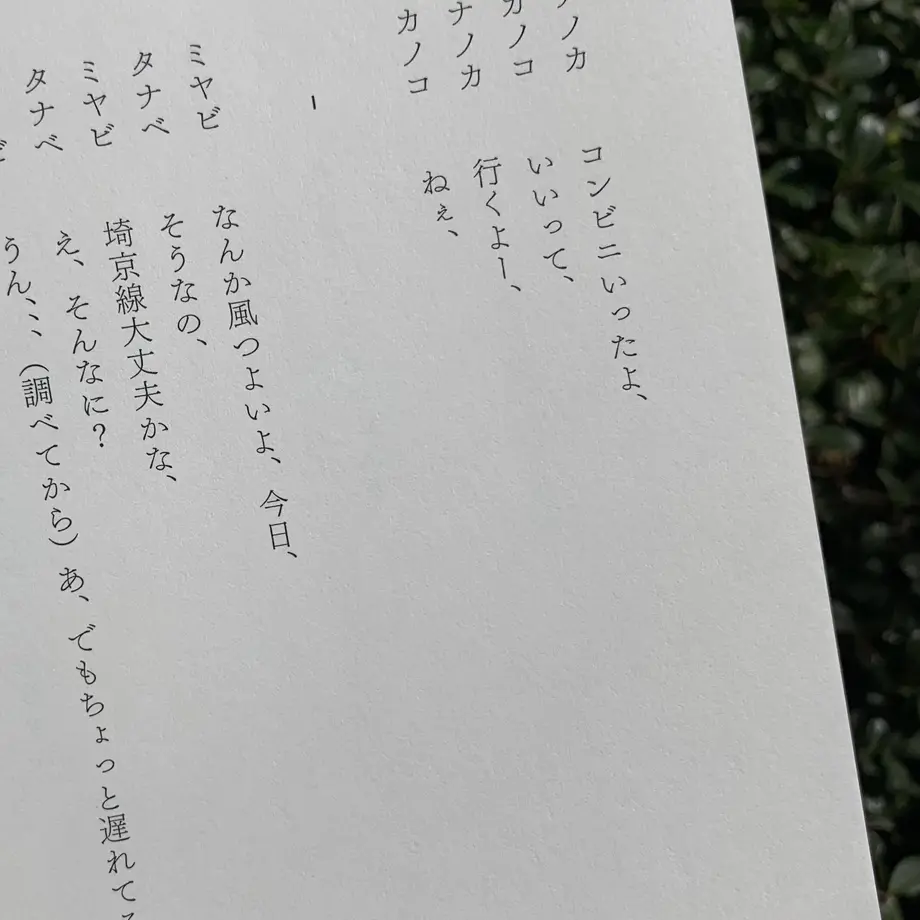 ナノカ コンビニいったよ、
カノコ いいって、
ナノカ 行くよー、
カノコ ねぇ、
ミヤビ なんか風つよいよ、今日、
タナベ そうなの、
ミヤビ 埼京線大丈夫かな、
タナベ え、そんなに？
ビ うん、、、（調べてから）あ、でもちょっと遅れてる